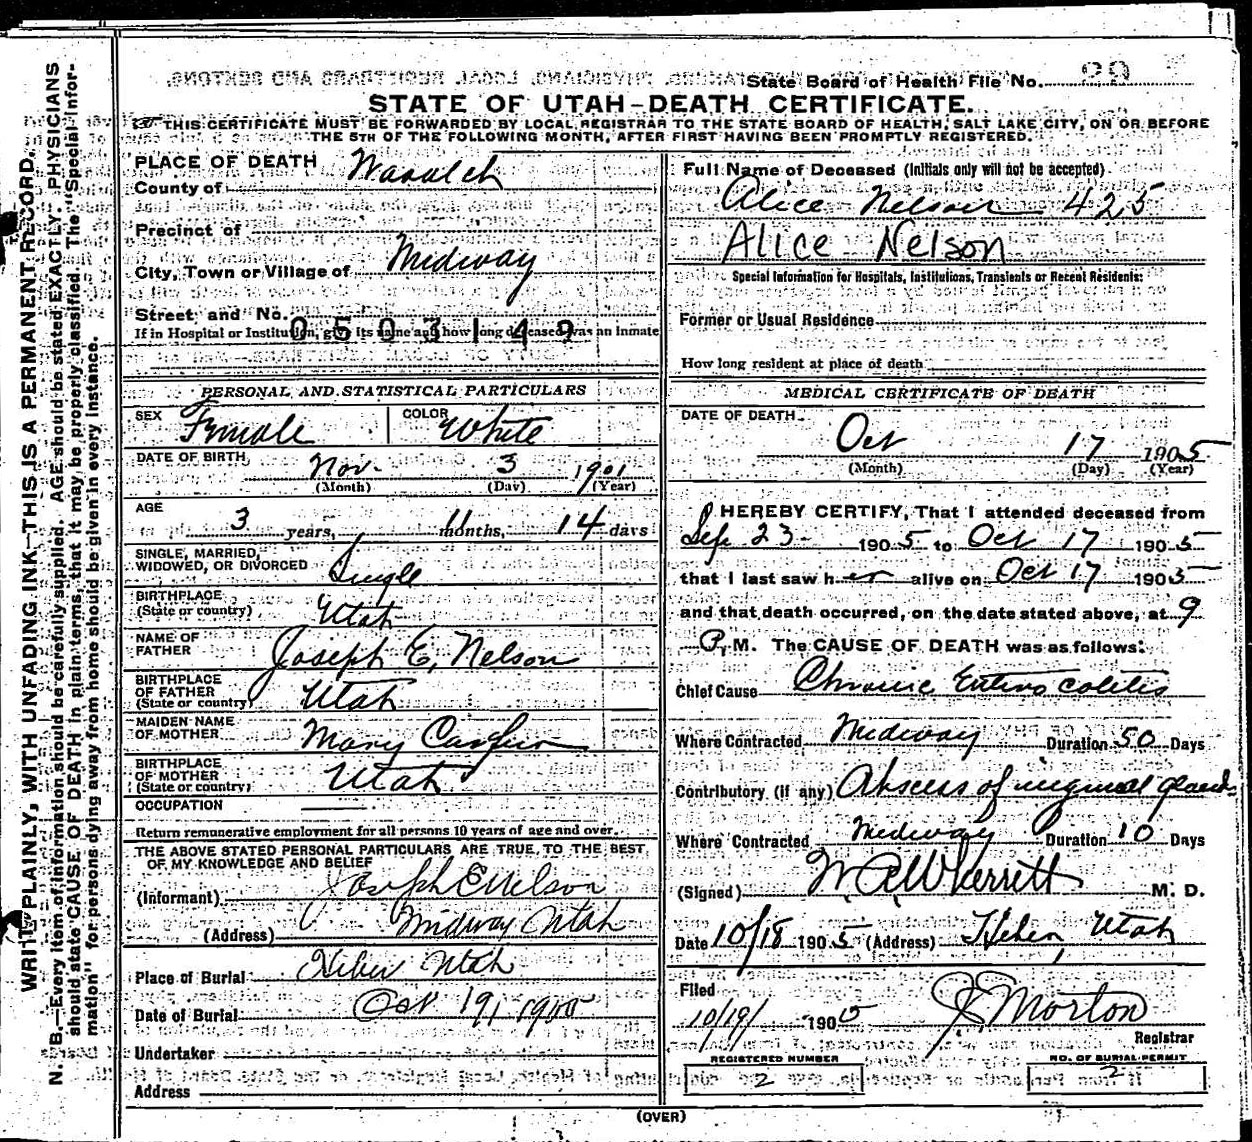 State Board of Health File No.
STATE OF UTAH-DEATH CERTIFICATE.
THIS CERTIFICATE MUST BE FORWARDED BY LOCAL REGISTRAR TO THE STATE BOARD OF HEALTH, SALT LAKE CITY, ON OR BEFORE
THE 5TH OF THE FOLLOWING MONTH, AFTER FIRST HAVING BEEN PROMPTLY REGISTERED.
WRITE PLAINLY, WITH UNFADING INK—THIS IS A PERMANENT RECORD.
N. B.—Every item of information should be carefully supplied. AGE should be stated EXACTLY. PHYSICIANS
should state CAUSE OF DEATH in plain terms, that it may be properly classified. The "Special Infor-
mation" for persons dying away from home should be given in every instance.
PLACE OF DEATH
County of Wasatch
Precinct of
City, Town or Village of Midway
Street, and No.
If in Hospital or Institution, give its name and how long deceased was an inmate
0503149
PERSONAL AND STATISTICAL PARTICULARS
SEX Female COLOR White
DATE OF BIRTH Nov. 3 1901
(Month) (Day) (Year)
AGE
3 years, 11 months, 14 days
SINGLE, MARRIED,
WIDOWED, OR DIVORCED Single
BIRTHPLACE
(State or country) Utah
NAME OF
FATHER Joseph E. Nelson
BIRTHPLACE
OF FATHER
(State or country) Utah
MAIDEN NAME
OF MOTHER Mary
BIRTHPLACE
OF MOTHER
(State or country) Utah
OCCUPATION
Return remunerative employment for all persons 10 years of age and over.
THE ABOVE STATED PERSONAL PARTICULARS ARE TRUE TO THE BEST
OF MY KNOWLEDGE AND BELIEF
(Informant) Joseph E Nelson
(Address) Midway Utah
Place of Burial Heber Utah
Date of Burial Oct 19, 1905
Undertaker
Address
Full Name of Deceased (Initials only will not be accepted)
Alice Nelson 425
Alice Nelson
Special Information for Hospitals, Institutions, Transients or Recent Residents:
Former or Usual Residence
How long resident at place of death
MEDICAL CERTIFICATE OF DEATH
DATE OF DEATH
Oct 17 1905
(Month) (Day) (Year)
I HEREBY CERTIFY, That I attended deceased from
Sep 23 1905 to Oct 17 1905
that I last saw her alive on Oct 17 1905
and that death occurred, on the date stated above, at 9
P. M. The CAUSE OF DEATH was as follows:
Chief Cause Chronic Entero colitis
Where Contracted Midway Duration 50 Days
Contributory (if any) Abscess of inguinal glands
Where Contracted Midway Duration 10 Days
(Signed) W. R. Wherritt M. D.
Date 10/18 1905 (Address) Heber, Utah
Filed
10/19/ 1905 J. Morton
Registrar
REGISTERED NUMBER
2
NO. OF BURIAL PERMIT
2
(OVER)